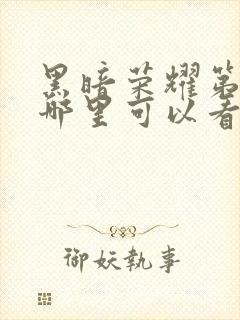 黑暗荣耀第
哪里可以看
御妖執事